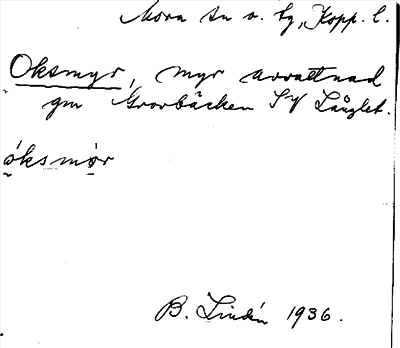 Mora sn o. tg, Kopp. l.
Oksmyr, myr avvattnad
gm Grovbäcken SV Långlet.
óksmọr
B. Lindén 1936.